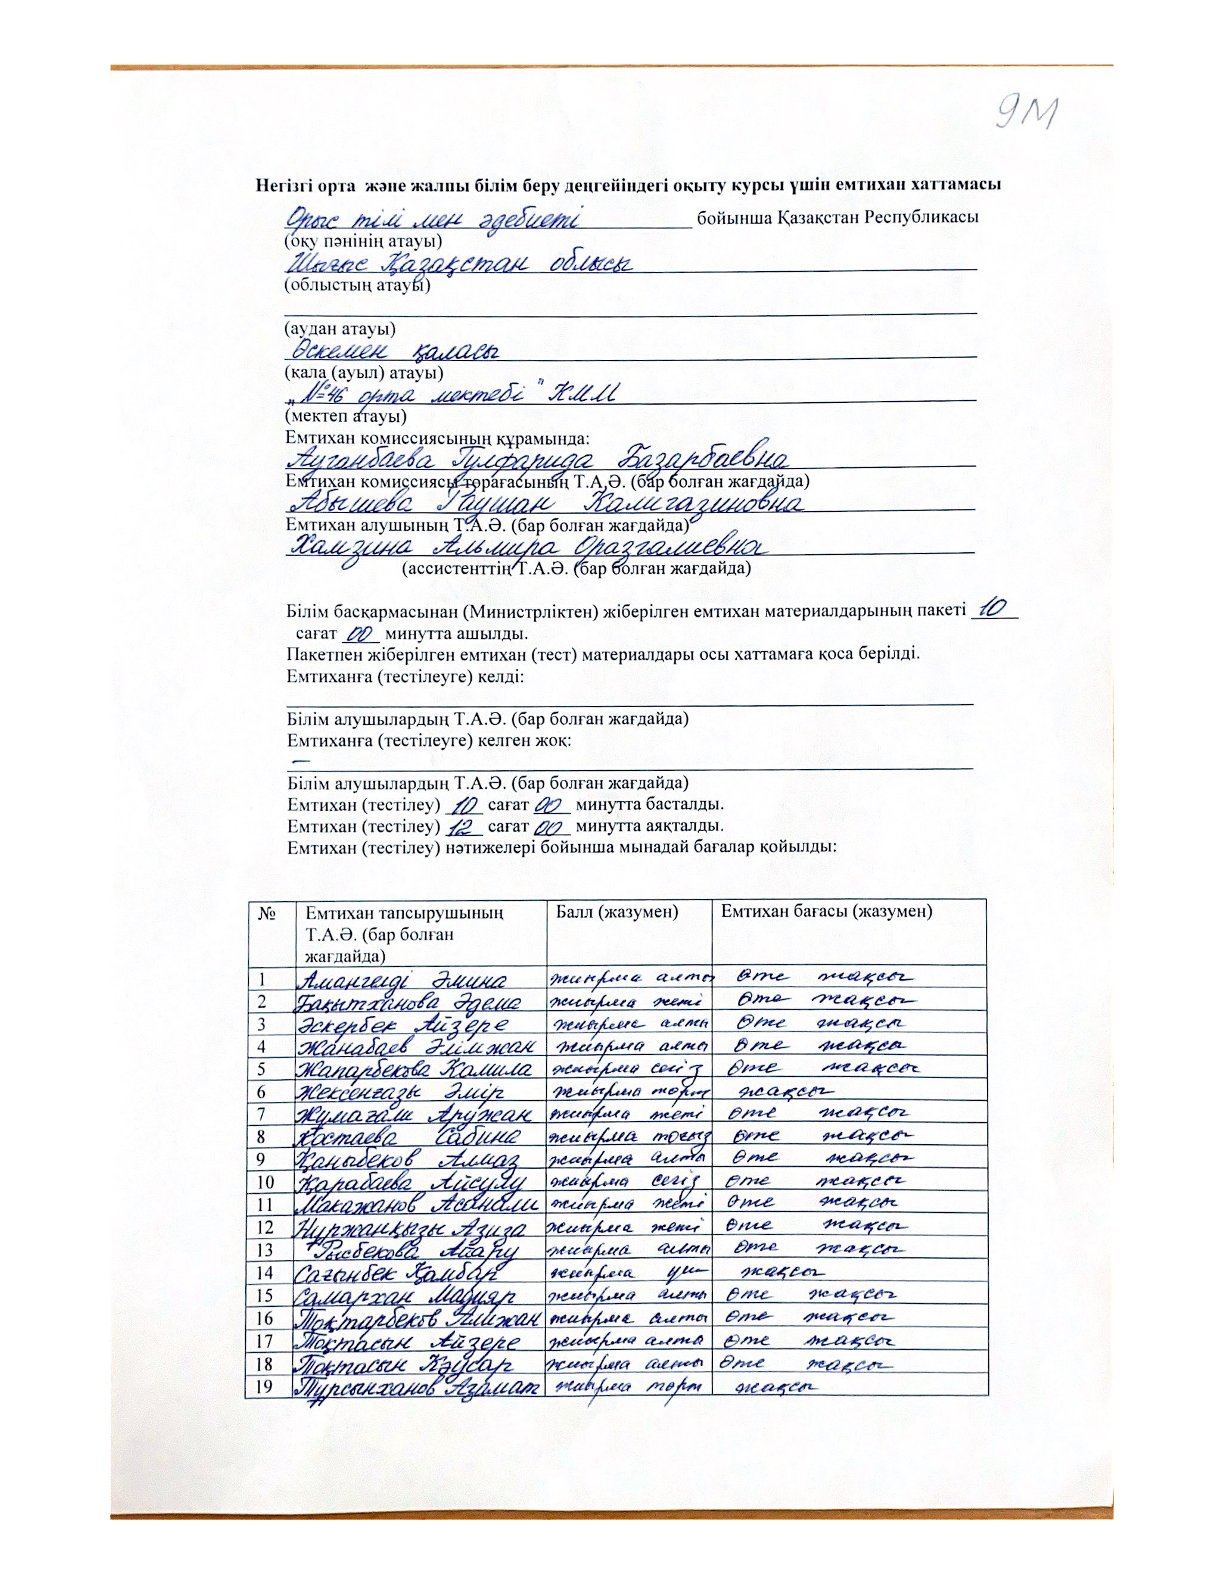 9М
Негізгі орта және жалпы білім беру деңгейіндегі оқыту курсы үшін емтихан хаттамасы
Орыс тілі мен әдебиеті бойынша Қазақстан Республикасы
(оқу пәнінің атауы)
Шығыс Қазақстан облысы
(облыстың атауы)
(аудан атауы)
Өскемен қаласы
(қала (ауыл) атауы)
„№46 орта мектебі" КММ
(мектеп атауы)
Емтихан комиссиясының құрамында:
Ауганбаева Гулфарида Базарбаевна
Емтихан комиссиясы төрағасының Т.А.Ә. (бар болған жағдайда)
Абышева Раушан Калигазиновна
Емтихан алушының Т.А.Ә. (бар болған жағдайда)
Хамзина Альмира Оразгалиевна
(ассистенттің Т.А.Ә. (бар болған жағдайда)
Білім басқармасынан (Министрліктен) жіберілген емтихан материалдарының пакеті 10
сағат 00 минутта ашылды.
Пакетпен жіберілген емтихан (тест) материалдары осы хаттамаға қоса берілді.
Емтиханға (тестілеуге) келді:
Білім алушылардың Т.А.Ә. (бар болған жағдайда)
Емтиханға (тестілеуге) келген жоқ:
—
Білім алушылардың Т.А.Ә. (бар болған жағдайда)
Емтихан (тестілеу) 10 сағат 00 минутта басталды.
Емтихан (тестілеу) 12 сағат 00 минутта аяқталды.
Емтихан (тестілеу) нәтижелері бойынша мынадай бағалар қойылды:
№ Емтихан тапсырушының Балл (жазумен) Емтихан бағасы (жазумен)
Т.А.Ә. (бар болған
жағдайда)
1 Амангелді Әмина жиырма алты өте жақсы
2 Бақытханова Әдема жиырма жеті өте жақсы
3 Әскербек Айзере жиырма алты өте жақсы
4 Жанабаев Әлімжан жиырма алты өте жақсы
5 Жапарбекова Камила жиырма сегіз өте жақсы
6 Жексенғазы Әмір жиырма төрт жақсы
7 Жумағали Аружан жиырма жеті өте жақсы
8 Костаева Сабина жиырма тоғыз өте жақсы
9 Қаныбеков Алмаз жиырма алты өте жақсы
10 Қарабаева Айсулу жиырма сегіз өте жақсы
11 Макажанов Асанали жиырма жеті өте жақсы
12 Нуржанқызы Азиза жиырма жеті өте жақсы
13 Рысбекова Айару жиырма алты өте жақсы
14 Сағынбек Қамбар жиырма үш жақсы
15 Самархан Мадияр жиырма алты өте жақсы
16 Тоқтарбеков Алижан жиырма алты өте жақсы
17 Тоқтасын Айзере жиырма алты өте жақсы
18 Тоқтасын Кәусар жиырма алты өте жақсы
19 Турсынханов Азамат жиырма төрт жақсы